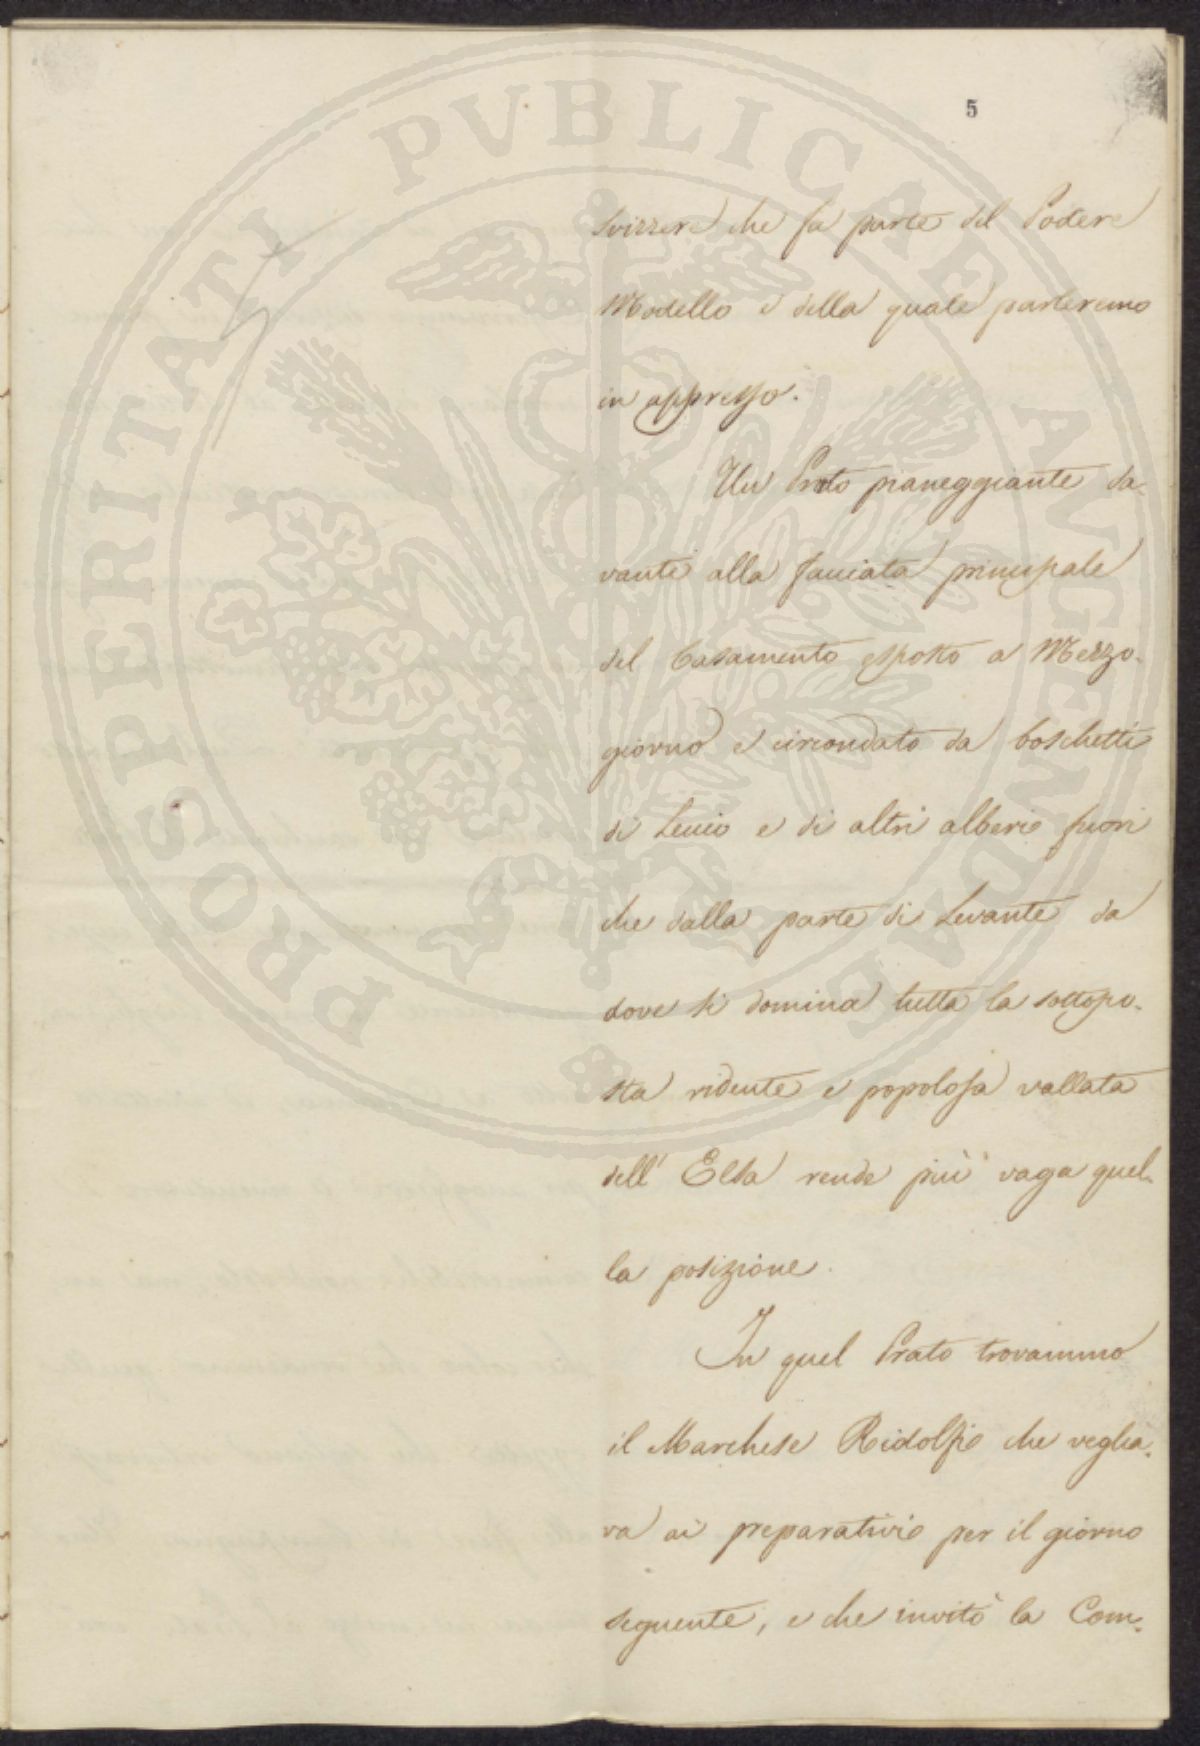 PROSPERITATI PVBLICAE AVGENDAE
5
5
svizzera che fa parte del Podere
Modello e della quale parleremo
in appresso.
Un Prato pianeggiante da-
vanti alla facciata principale
del Casamento esposto a Mezzo-
giorno e circondato da boschetti
di Leccio e di altri alberi fuori
che dalla parte di Levante da
dove si domina tutta la sottopo-
sta ridente e popolosa vallata
dell' Elsa rende più vaga quel-
la posizione.
In quel Prato trovammo
il Marchese Ridolfi che veglia-
va ai preparativi per il giorno
seguente, e che invitò la Com-